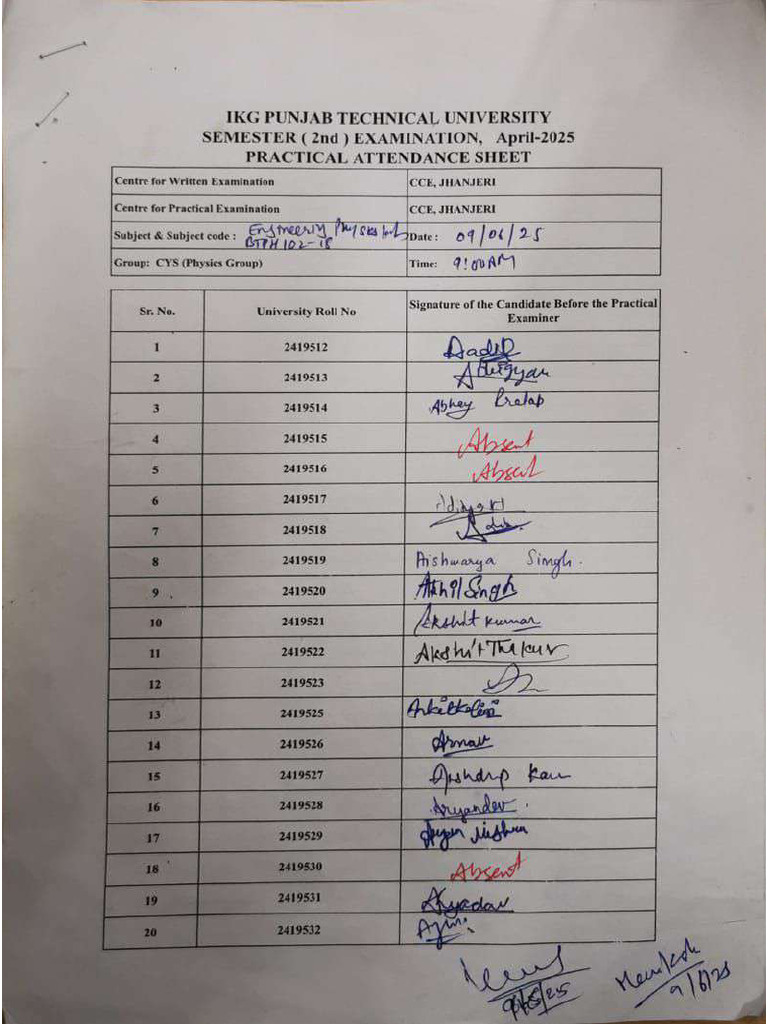 IKG PUNJAB TECHNICAL UNIVERSITY
SEMESTER ( 2nd ) EXAMINATION, April-2025
PRACTICAL ATTENDANCE SHEET
Centre for Written Examination CCE, JHANJERI
Centre for Practical Examination CCE, JHANJERI
Subject & Subject code : BTPH102-18 Date : 09/06/25
Group: CYS (Physics Group) Time: 9:00AM
Sr. No. University Roll No Signature of the Candidate Before the Practical Examiner
1 2419512 Aadil
2 2419513
3 2419514 Abhey Pratap
4 2419515 Absent
5 2419516 Absent
6 2419517
7 2419518
8 2419519 Aishwarya Singh.
9 2419520 Akhil Singh
10 2419521 Akshit kumar
11 2419522 Akshit Thakur
12 2419523
13 2419525
14 2419526 Arnav
15 2419527 Arshdeep Kaur
16 2419528 Aryandev.
17 2419529 Mishra
18 2419530 Absent
19 2419531
20 2419532
9/6/25